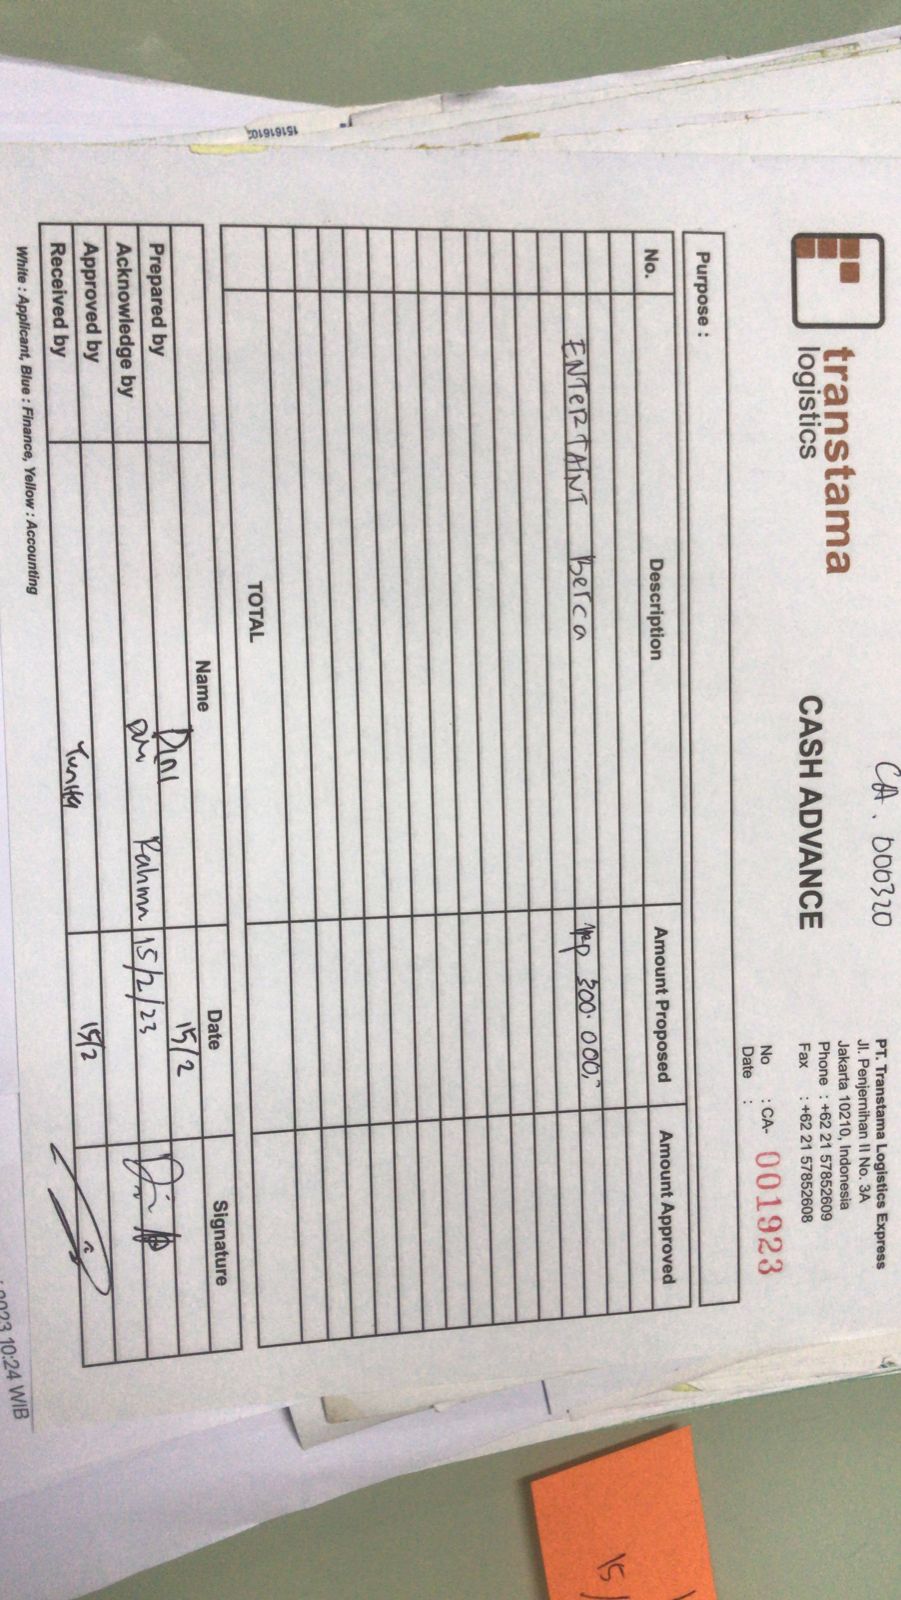 CA. 000320
transtama
logistics
CASH ADVANCE
PT. Transtama Logistics Express
Jl. Penjernihan II No. 3A
Jakarta 10210, Indonesia
Phone : +62 21 57852609
Fax : +62 21 57852608
No : CA- 001923
Date :
Purpose :
No. Description Amount Proposed Amount Approved
ENTERTAINT Berca Rp 300.000,-
TOTAL
Name Date Signature
Prepared by Dini 15/2
Acknowledge by Rahma 15/2/23
Approved by
Received by 15/2
White : Applicant, Blue : Finance, Yellow : Accounting
15161610
2023 10:24 WIB
15/